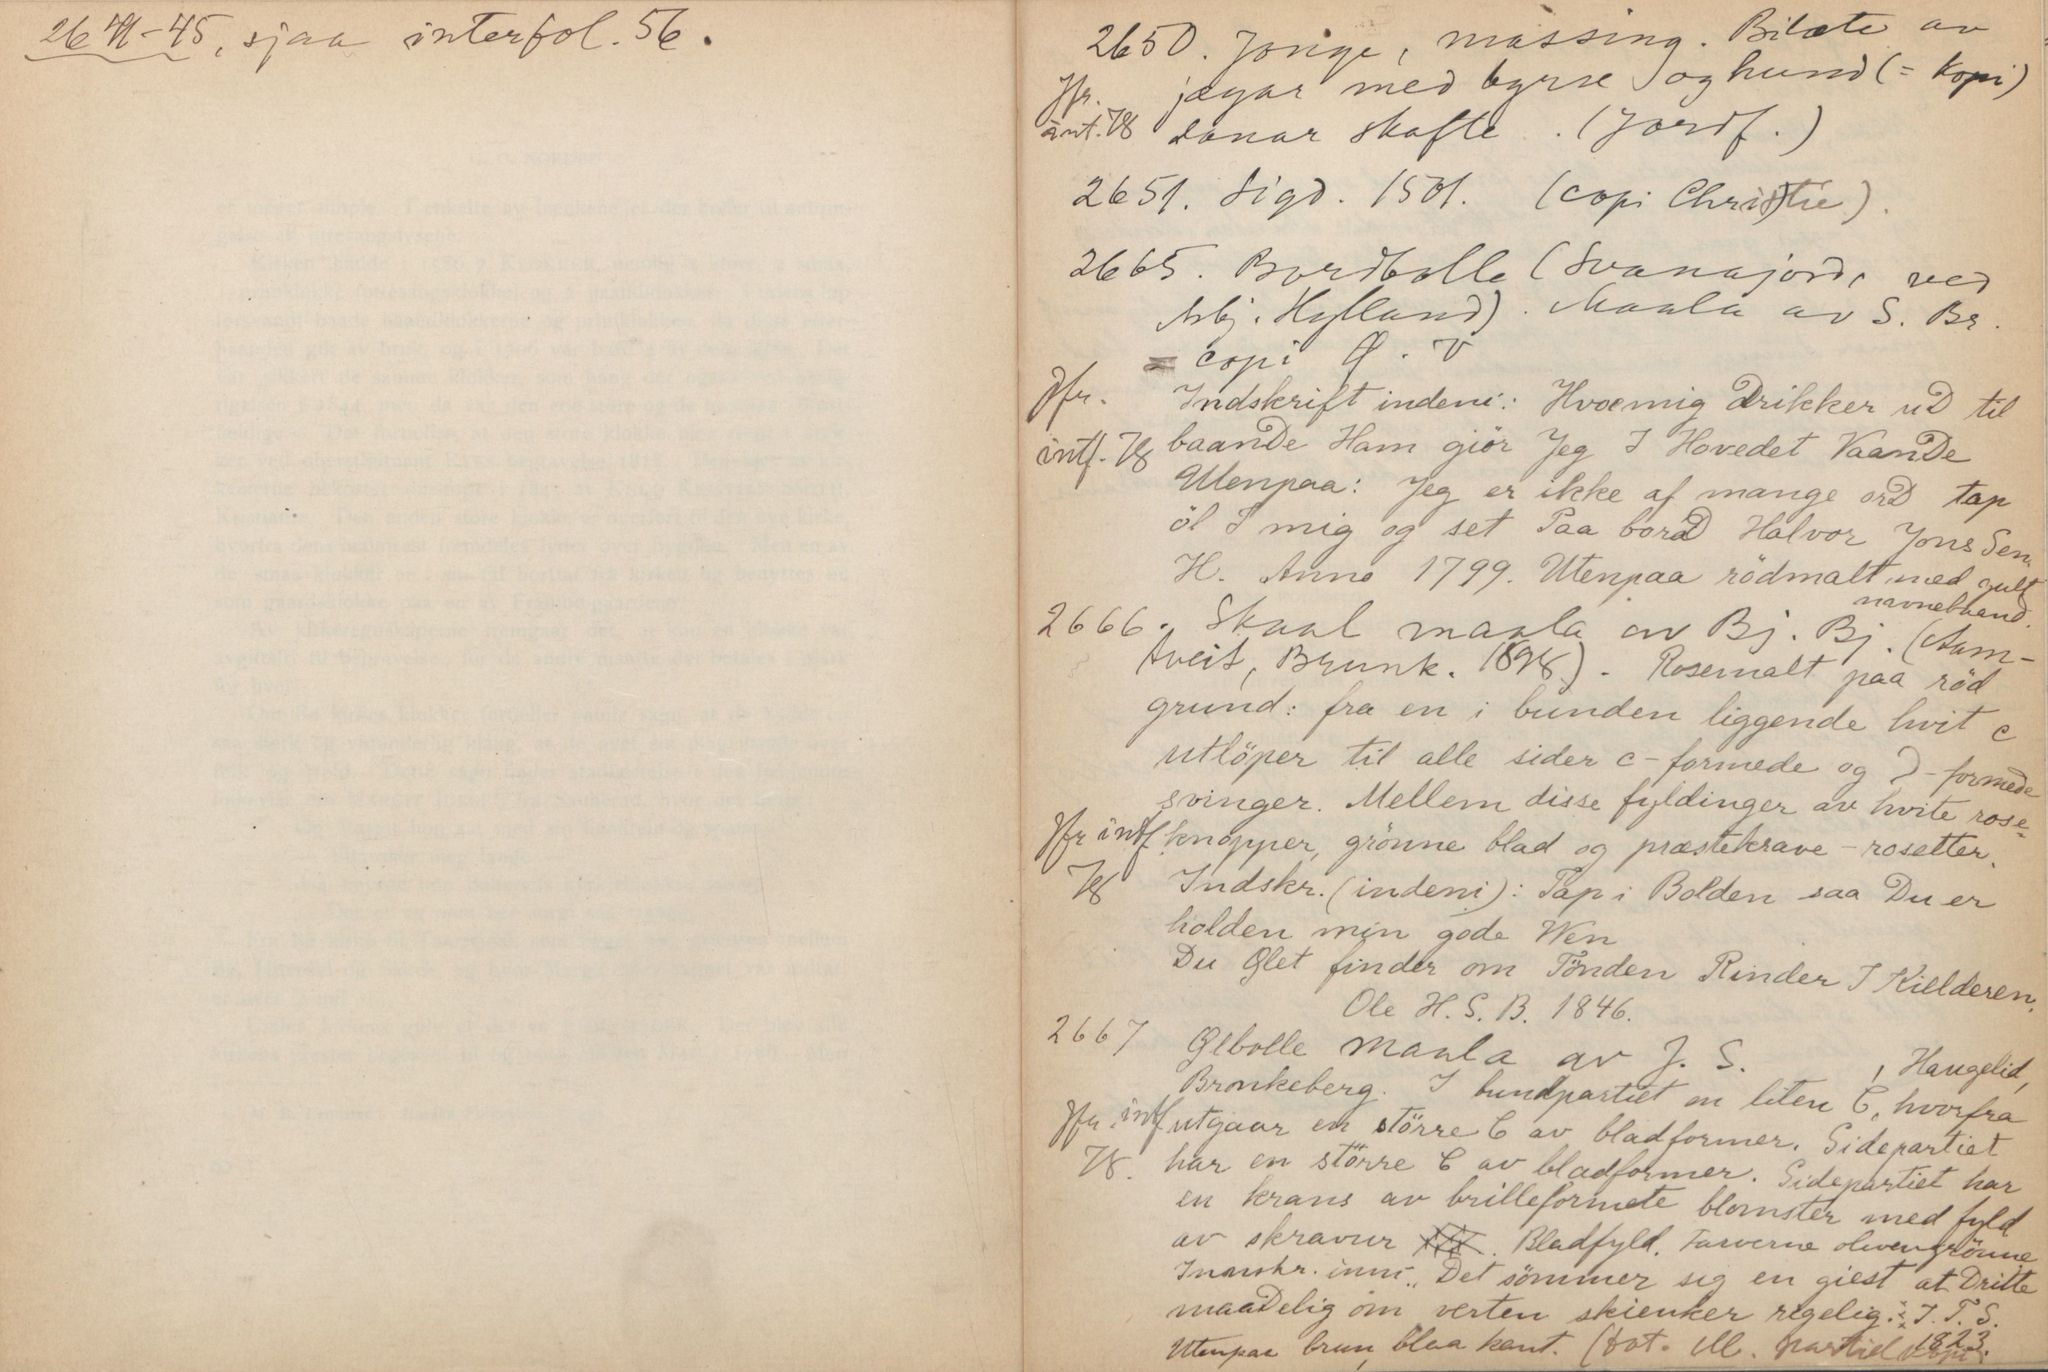 2641-45, sjaa interfol. 56.
2650. Jonge, massing. Bilæte av
Jfr. jægar med byrse og hund (= kopi)
ant. 78 danar skafte. (Jordf.)
2651. Sigd. 1501. (copi Christie).
2665. Bordbolle (Svanajord, ved
Asbj. Hylland). Maala av S. Br.
= copi Ø. V
Jfr. Indskrift indeni: Hvoemig Drikker uD til
intf. 78 baanDe Ham giör Jeg I Hovedet VaanDe
Utenpaa: Jeg er ikke af mange orD tap
öl I mig og set Paa borD Halvor JonsSen
H. Anno 1799. Utenpaa rödmalt med gult
navnebaand.
2666. Skaal maala av Bj. Bj. (Aam-
tveit, Brunk. 1898). Rosemalt paa röd
grund: fra en i bunden liggende hvit c
utlöper til alle sider c-formede og Ɔ-formede
svinger. Mellem disse fyldinger av hvite rose-
Jfr intf knopper, grönne blad og præstekrave-rosetter.
78 Indskr. (indeni): Tap i Bolden saa Du er
holden min gode Wen
Du Ølet finder om Tönden Rinder I Kielderen.
Ole H. S. B. 1846.
2667 Ølbolle maala av J. S. , Haugelid,
Brunkeberg. I bundpartiet en liten C, hvorfra
Jfr. intf utgaar en större C av bladformer. Sidepartiet
78. har en större C av bladformer. Sidepartiet har
en krans av brilleformete blomster med fyld
av skravur . Bladfyld. Farverne olivengrönne
Innskr. inni: Det sömmer sig en giest at Dritte
maaDelig om verten skienker regelig. : I. T. S.
1823.
Utenpaa brun, blaa kant. (fot. M. partiel kopi).